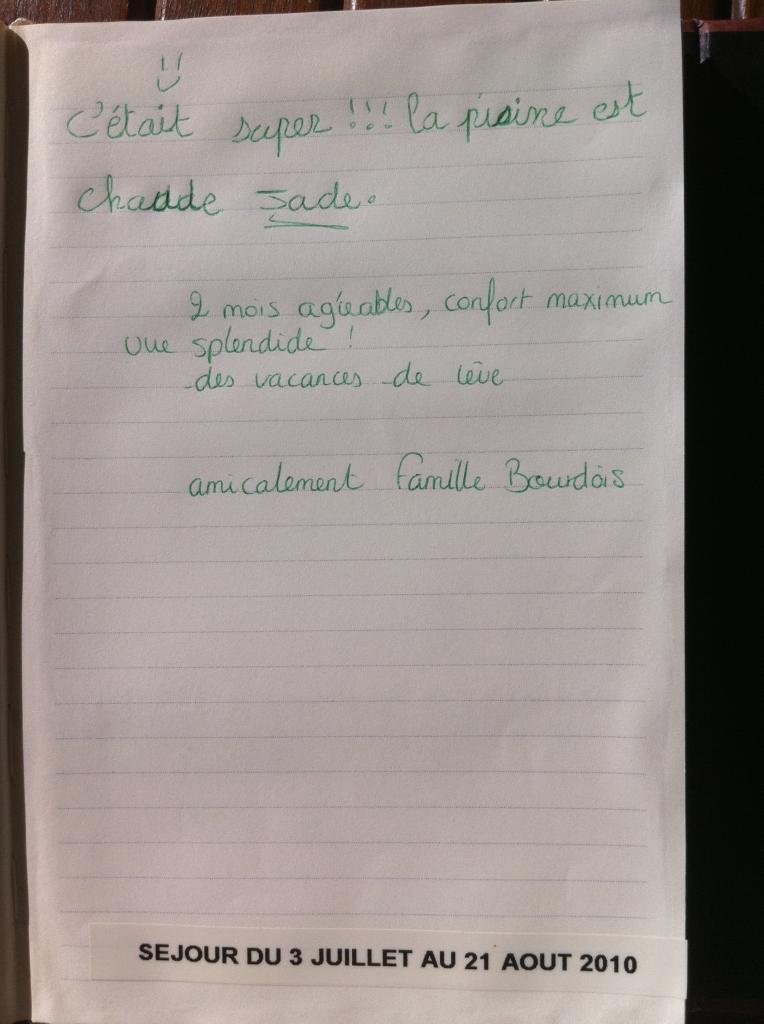 C'était super !!! la pisine est
chaude Jade.
2 mois agréables, confort maximum
vue splendide !
des vacances de rêve
amicalement famille Bourdois
SEJOUR DU 3 JUILLET AU 21 AOUT 2010